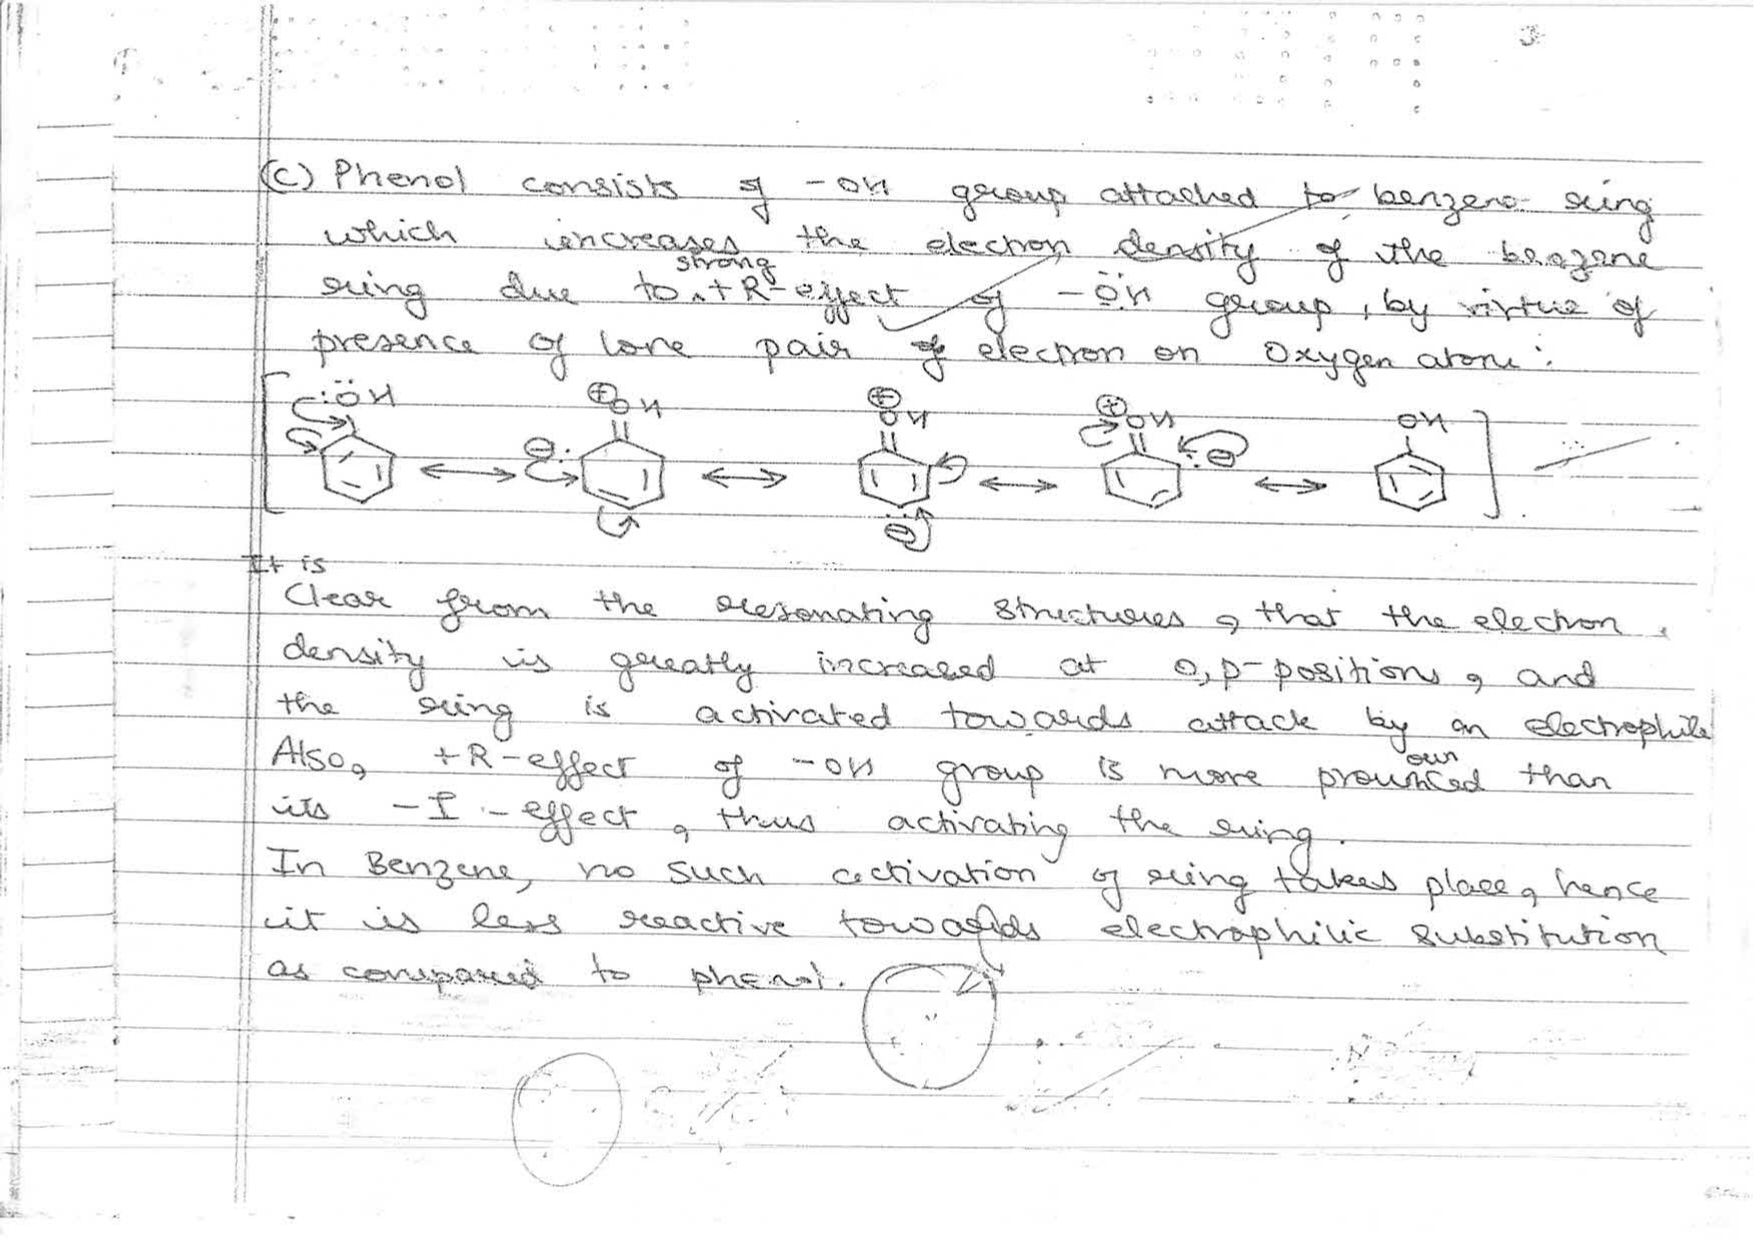 (C) Phenol consists of -OH group attached to benzene ring
which increases the electron density of the benzene
ring due to strong +R-effect of -ÖH group, by virtue of
presence of lone pair of electron on Oxygen atom:
:ÖH ⊕OH ⊕OH ⊕OH OH
⊖: :⊖
⊖
It is
Clear from the resonating structures, that the electron
density is greatly increased at o,p-positions, and
the ring is activated towards attack by an electrophile
Also, +R-effect of -OH group is more prounounced than
its -I-effect, thus activating the ring.
In Benzene, no such activation of ring takes place, hence
it is less reactive towards electrophilic substitution
as compared to phenol.